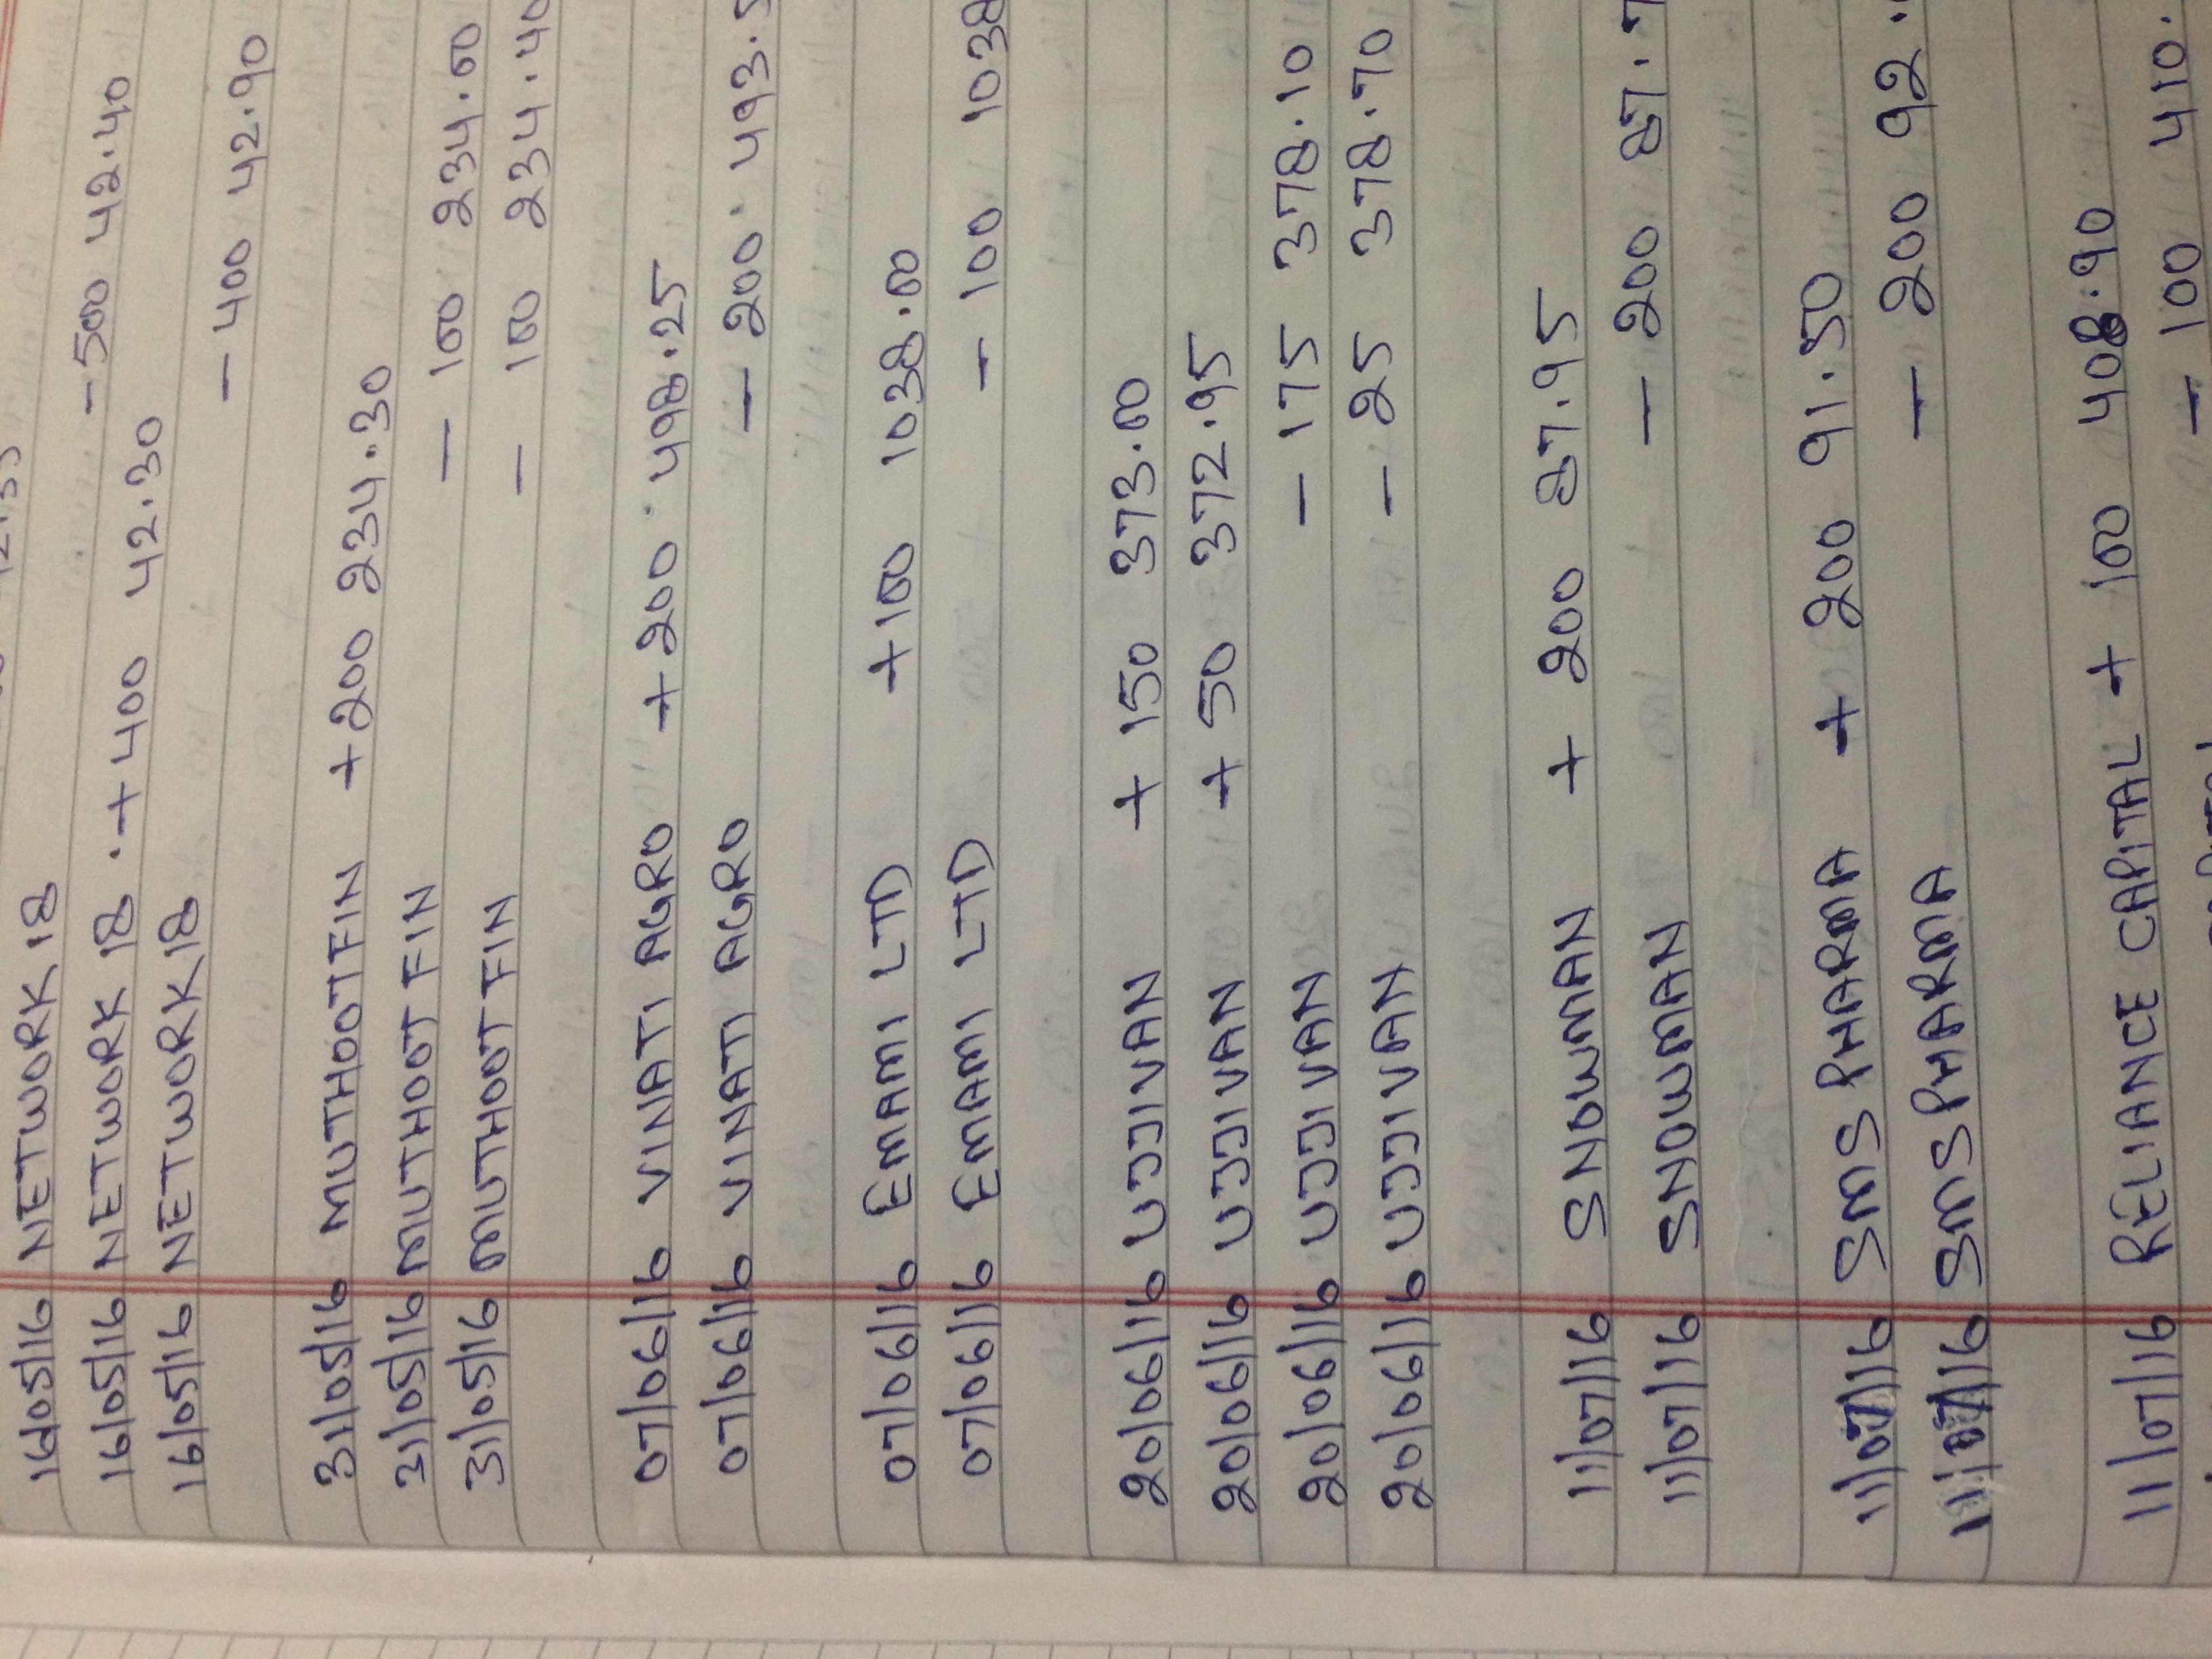 16/05/16 NETWORK 18 - 500 42.40
16/05/16 NETWORK 18 + 400 42.30
16/05/16 NETWORK 18 - 400 42.90
31/05/16 MUTHOOT FIN + 200 234.30
31/05/16 MUTHOOT FIN - 100 234.00
31/05/16 MUTHOOT FIN - 100 234.40
07/06/16 VINATI AGRO + 200 498.25
07/06/16 VINATI AGRO - 200 493.5
07/06/16 EMAMI LTD + 100 1038.00
07/06/16 EMAMI LTD - 100 1038
20/06/16 UJJIVAN + 150 373.00
20/06/16 UJJIVAN + 50 372.95
20/06/16 UJJIVAN - 175 378.10
20/06/16 UJJIVAN - 25 378.70
11/07/16 SNOWMAN + 200 87.95
11/07/16 SNOWMAN - 200 87.7
11/07/16 SMS PHARMA + 200 91.50
11/07/16 SMS PHARMA - 200 92.
11/07/16 RELIANCE CAPITAL + 100 408.90
- 100 410.